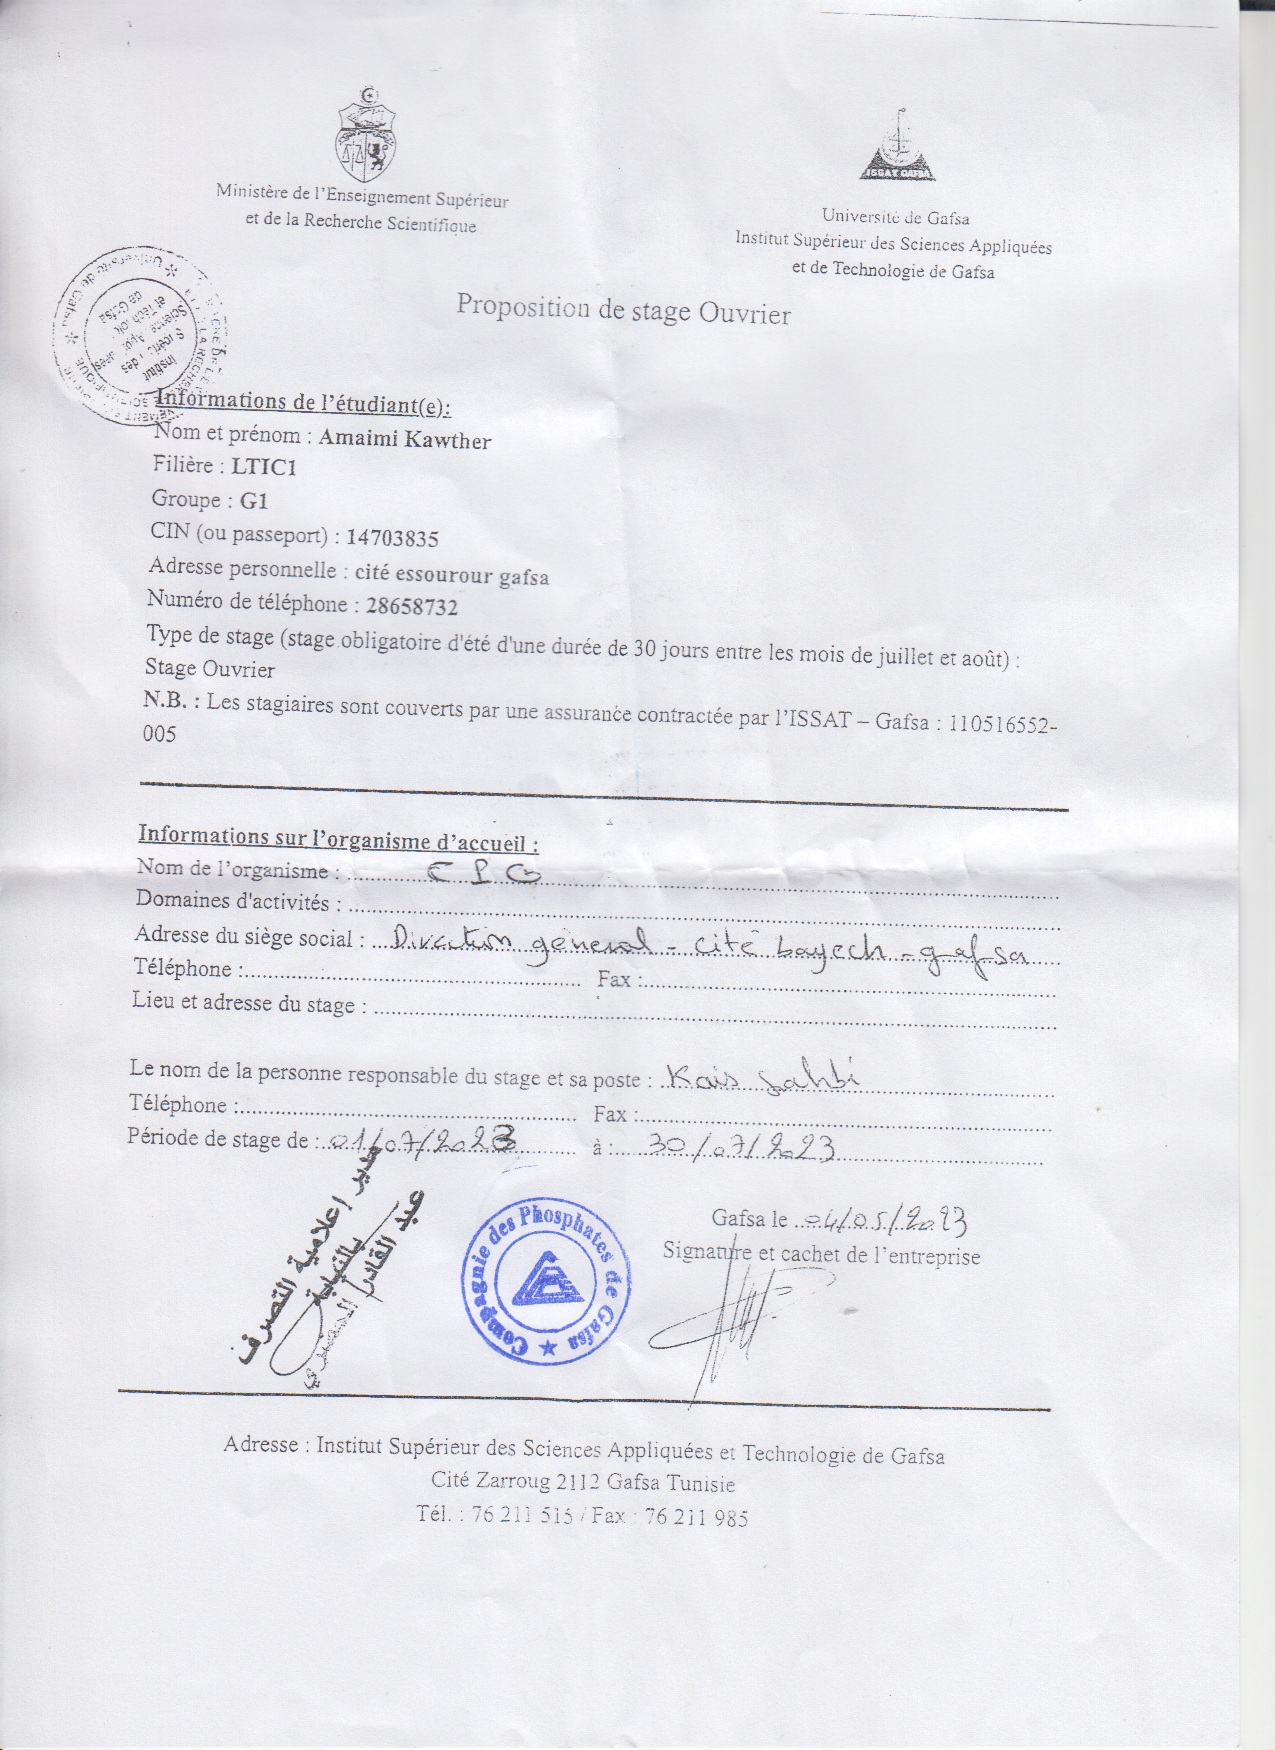 Ministère de l'Enseignement Supérieur
et de la Recherche Scientifique
ISSAT GAFSA
Université de Gafsa
Institut Supérieur des Sciences Appliquées
et de Technologie de Gafsa
Proposition de stage Ouvrier
Informations de l'étudiant(e):
Nom et prénom : Amaimi Kawther
Filière : LTIC1
Groupe : G1
CIN (ou passeport) : 14703835
Adresse personnelle : cité essourour gafsa
Numéro de téléphone : 28658732
Type de stage (stage obligatoire d'été d'une durée de 30 jours entre les mois de juillet et août) :
Stage Ouvrier
N.B. : Les stagiaires sont couverts par une assurance contractée par l'ISSAT – Gafsa : 110516552-
005
Informations sur l'organisme d'accueil :
Nom de l'organisme : CPG
Domaines d'activités :
Adresse du siège social : Direction géneral - cité bayech - gafsa
Téléphone : Fax :
Lieu et adresse du stage :
Le nom de la personne responsable du stage et sa poste : Kais Sahbi
Téléphone : Fax :
Période de stage de : 01/07/2023 à : 30/07/2023
مدير إعلامية التصرف
بالنيابة
عبد القادر
Compagnie des Phosphates de Gafsa
Gafsa le 04/05/2023
Signature et cachet de l'entreprise
Adresse : Institut Supérieur des Sciences Appliquées et Technologie de Gafsa
Cité Zarroug 2112 Gafsa Tunisie
Tél. : 76 211 515 / Fax : 76 211 985